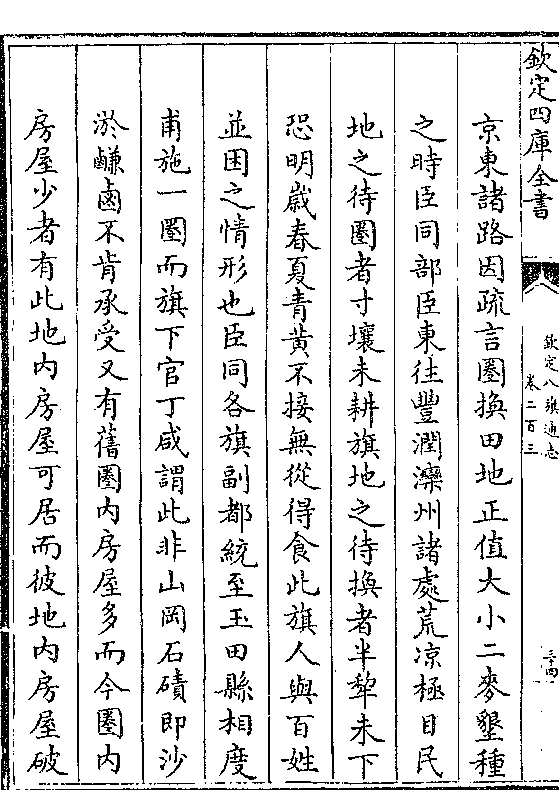 欽定四庫全書
欽定八旗通志
卷二百三
三十四
京東諸路因疏言圈換田地正值大小二麥墾種
之時臣同部臣東往豐潤灤州諸處荒凉極目民
地之待圈者寸壤未耕旗地之待換者半犂未下
恐明嵗春夏青黄不接無從得食此旗人與百姓
並困之情形也臣同各旗副都統至玉田縣相度
甫施一圈而旗下官丁咸謂此非山岡石磧即沙
淤鹻鹵不肯承受又有舊圈内房屋多而今圈内
房屋少者有此地内房屋可居而彼地内房屋破